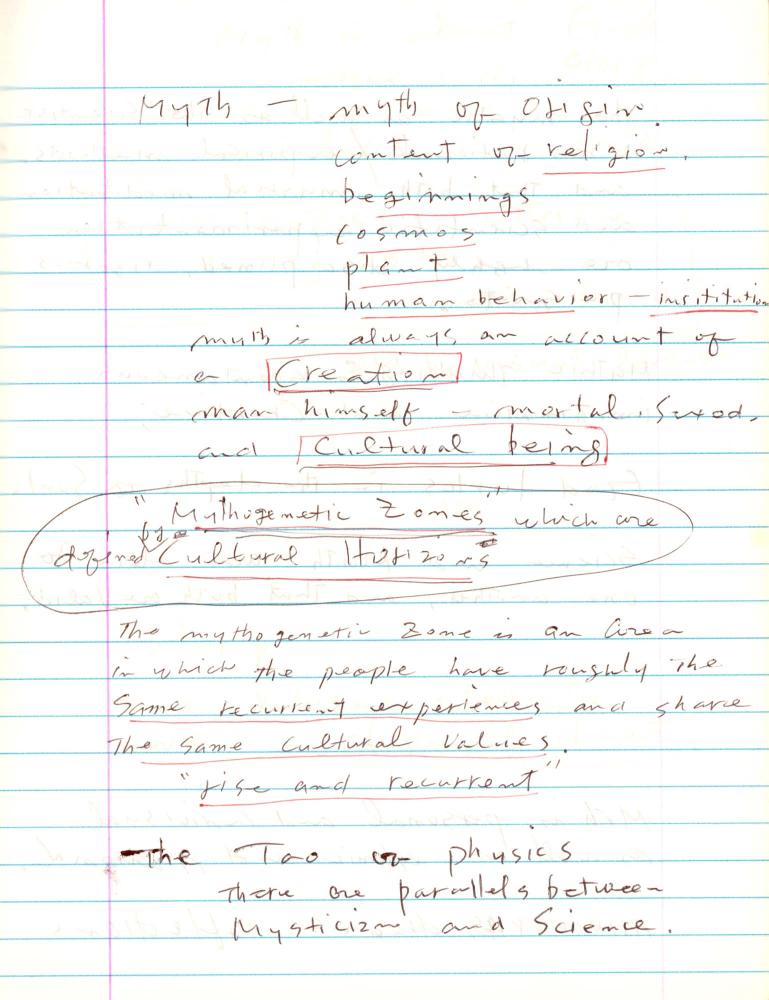 Myth – myth of Origin.
content of religion.
beginnings
Cosmos
plant
human behavior – insititution
myth is always an account of
a Creation
man himself – mortal. Sexed,
and Cultural being
"Mythogenetic Zones" which are
defined by Cultural Horizons
The mythogenetic Zone is an Area
in which the people have roughly the
Same recurrent experiences and share
The same Cultural Values.
"rise and recurrent"
-The Tao of physics
There are parallels between
Mysticizm and Science.